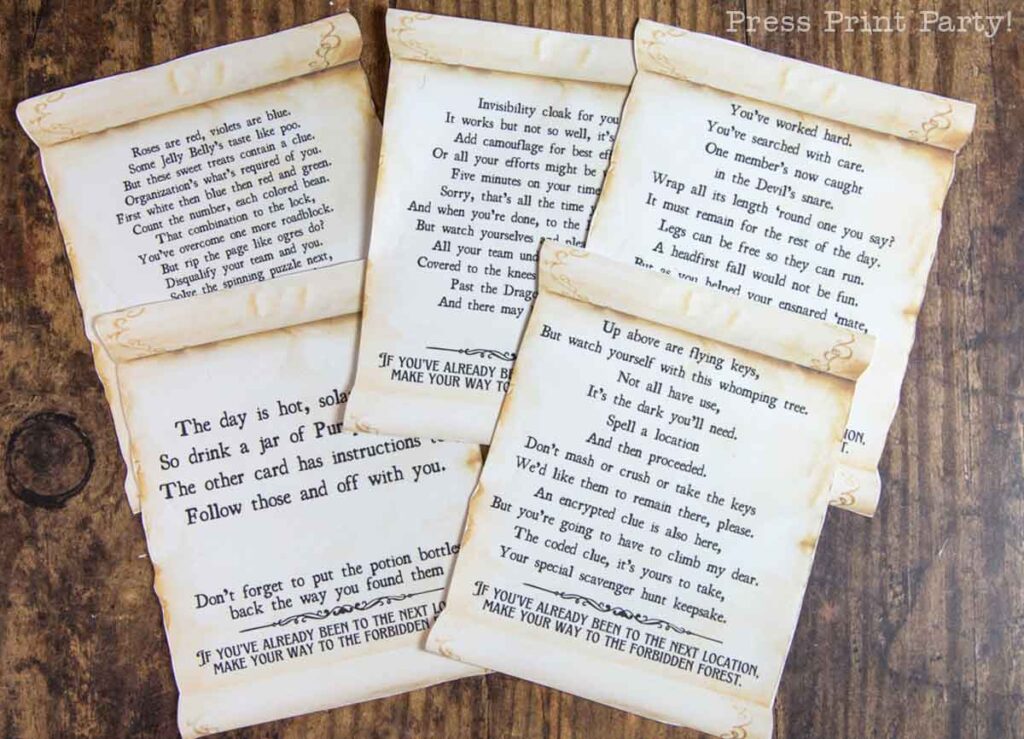 Press Print Party!
Roses are red, violets are blue.
Some Jelly Belly's taste like poo.
But these sweet treats contain a clue.
Organization's what's required of you.
First white then blue then red and green.
Count the number, each colored bean.
That combination to the lock,
You've overcome one more roadblock.
But rip the page like ogres do?
Disqualify your team and you.
Solve the spinning puzzle next,
Invisibility cloak for you
It works but not so well, it's
Add camouflage for best
Or all your efforts might be
Five minutes on your time
Sorry, that's all the time
And when you're done, to the
But watch yourselves and
All your team
Covered to the knees
Past the
And there may
If you've already
make your way to
You've worked hard.
You've searched with care.
One member's now caught
in the Devil's snare.
Wrap all its length 'round one you say?
It must remain for the rest of the day.
Legs can be free so they can run.
A headfirst fall would not be fun.
But as you helped your ensnared 'mate,
The day is hot,
So drink a jar of
The other card has instructions
Follow those and off with you.
Don't forget to put the potion bottle
back the way you found them
If you've already been to the next
make your way to the Forbidden
Up above are flying keys,
But watch yourself with this whomping tree.
Not all have use,
It's the dark you'll need.
Spell a location
And then proceeded.
Don't mash or crush or take the keys
We'd like them to remain there, please.
An encrypted clue is also here,
But you're going to have to climb my dear.
The coded clue, it's yours to take,
Your special scavenger hunt keepsake.
If you've already been to the next location,
make your way to the Forbidden Forest.